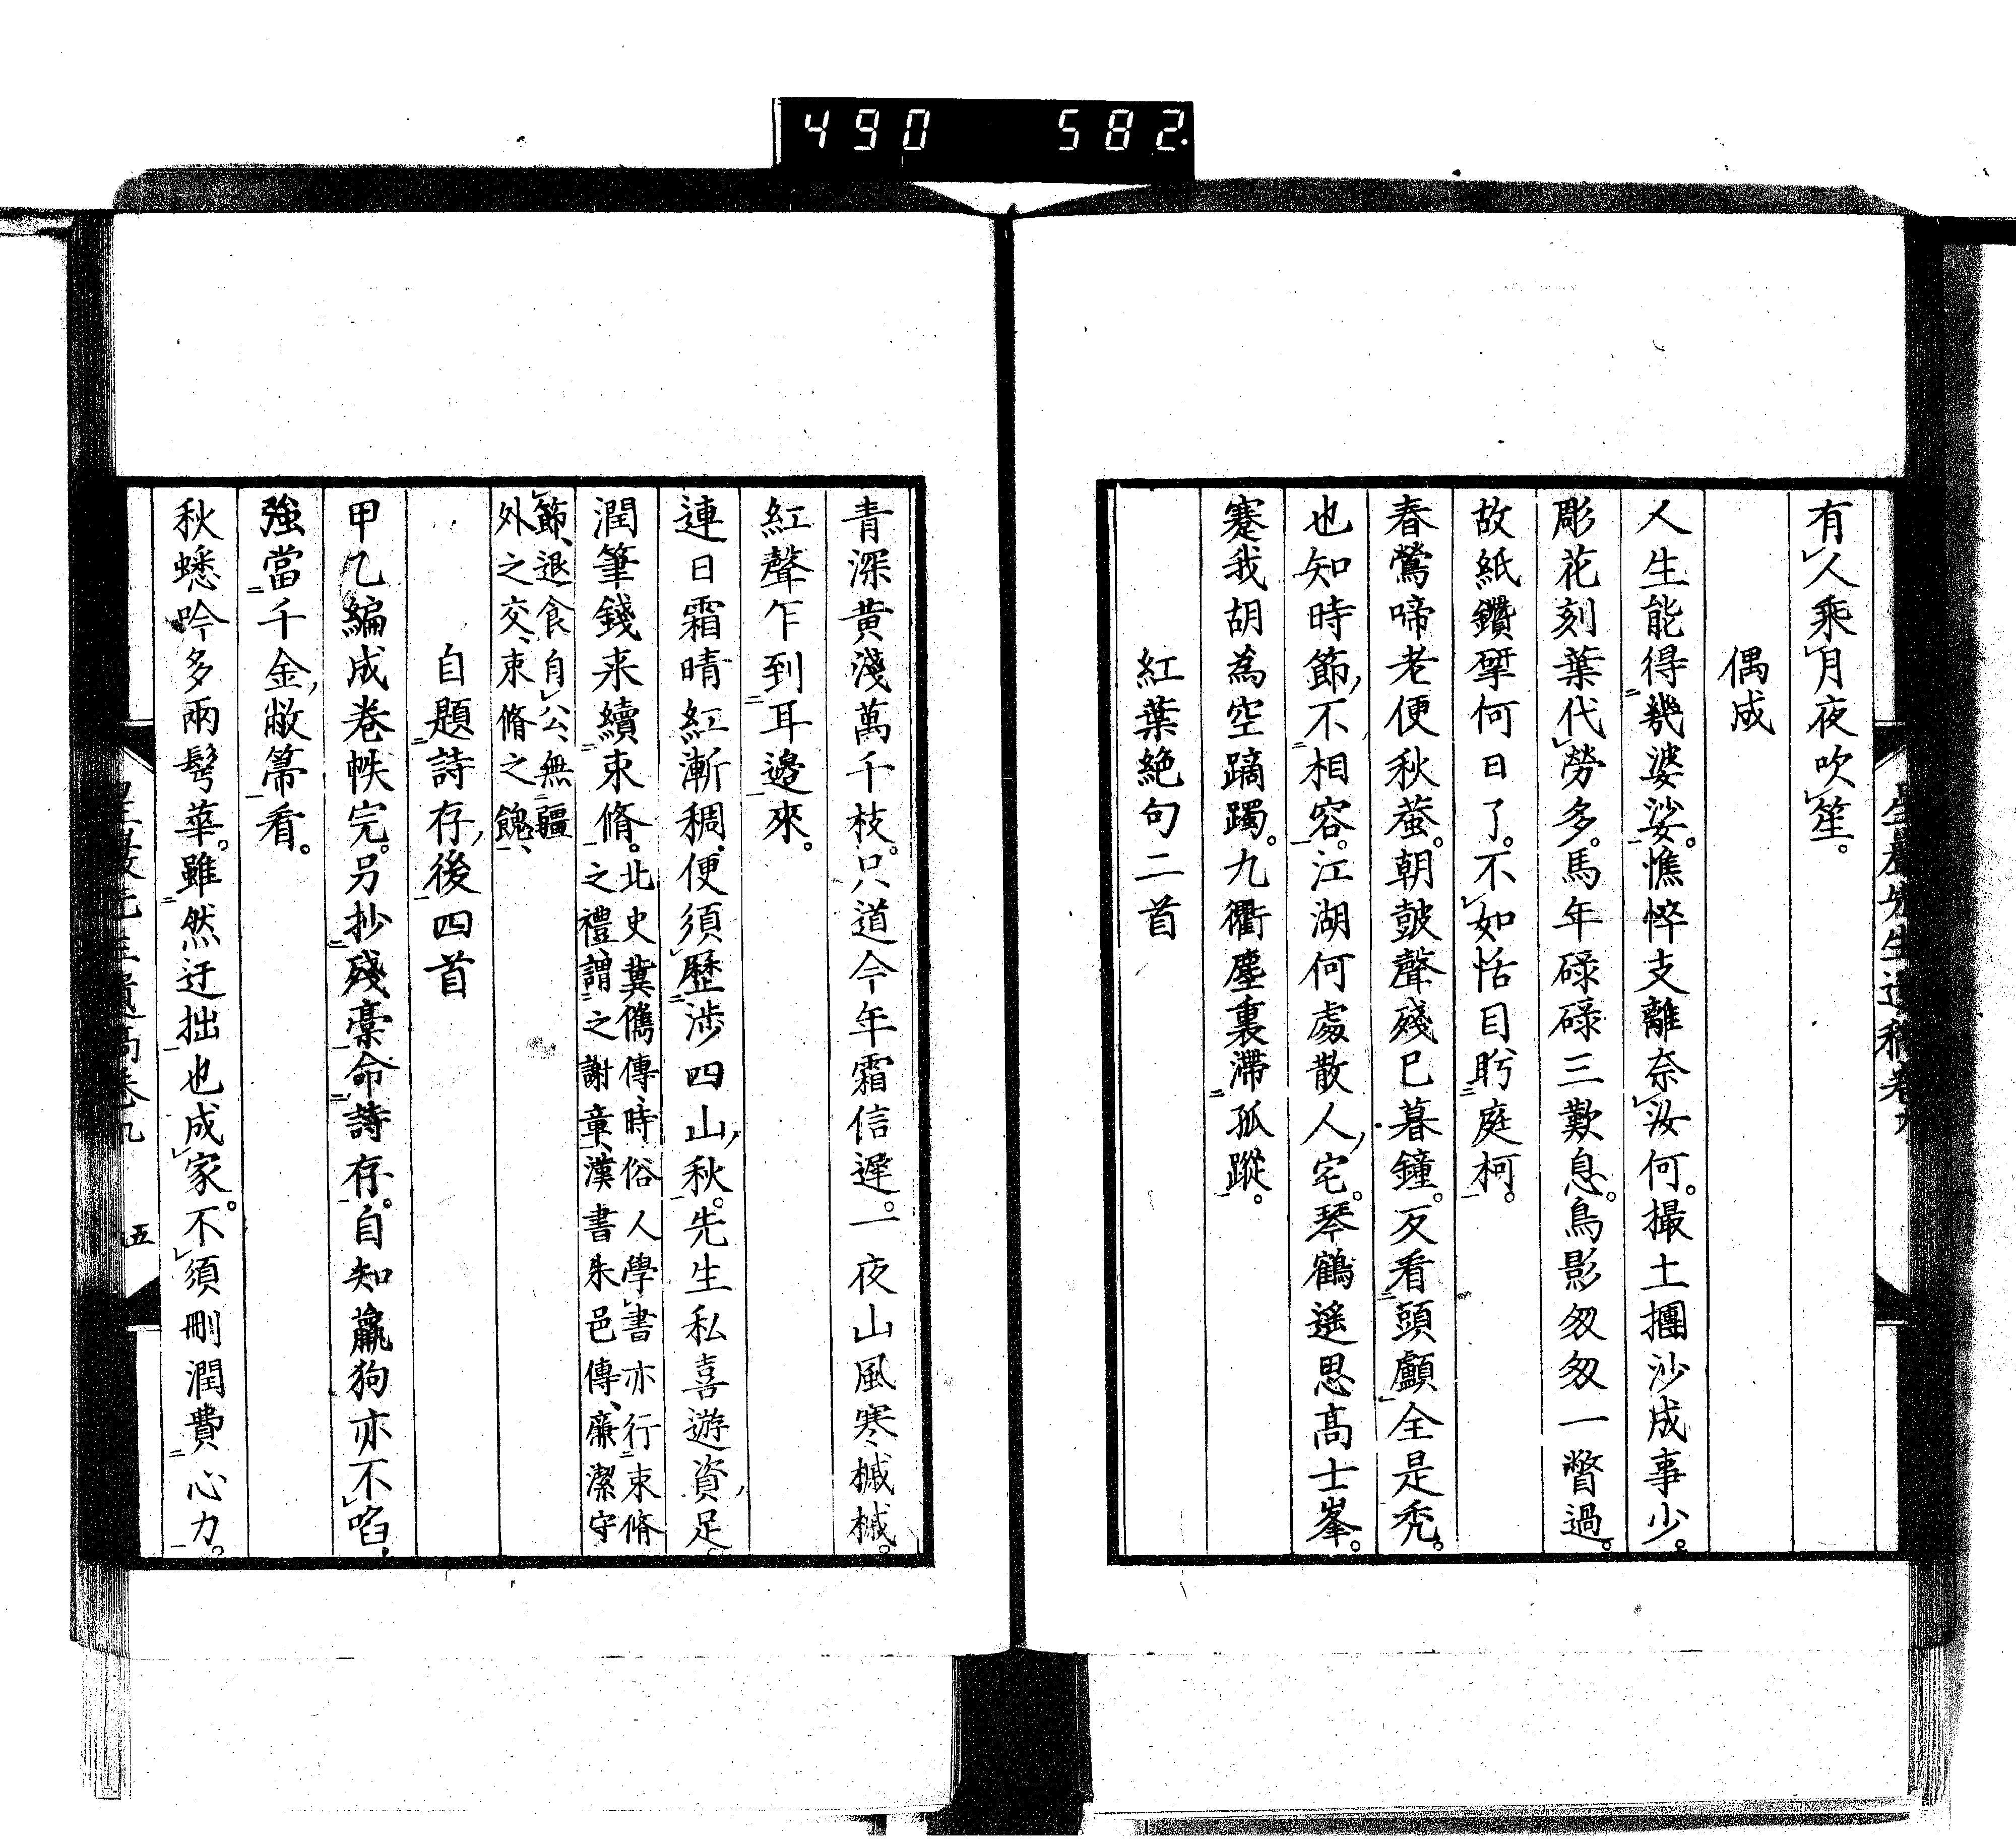 490 582
有人乘月夜吹笙。
偶成
人生能得幾婆娑。憔悴支離奈汝何。撮土摶沙成事少。
彫花刻葉代勞多。馬年碌碌三歎息。鳥影匆匆一瞥過。
故紙鑽揅何日了。不如恬目眄庭柯。
春鶯啼老便秋蛩。朝鼓聲殘巳暮鐘。反看頭顱全是禿。
也知時節不相容。江湖何處散人宅。琴鶴遙思高士峯。
蹇我胡為空蹢躅。九衢塵裏滯孤蹤。
紅葉絶句二首
青深黄淺萬千枝。只道今年霜信遲。一夜山風寒槭槭。
紅聲乍到耳邊來。
連日霜晴紅漸稠。便須歷渉四山秋。先生私喜遊資足。
潤筆錢来續束脩。北史冀儁傳、時俗人學書亦行束脩
之禮、謂之謝章、漢書朱邑傳、廉潔守
節、退食自公、無疆
外之交、束脩之餽、
自題詩存後四首
甲乙編成卷帙完。另抄殘藁命詩存。自知羸狗亦不啗。
強當千金敝帚看。
秋蟋吟多兩鬂華。雖然迂拙也成家。不須刪潤費心力。
五